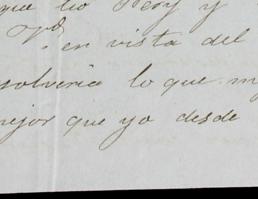 que lio Pery y
Vd. en vista del
solveria lo que m
mejor que yo desde